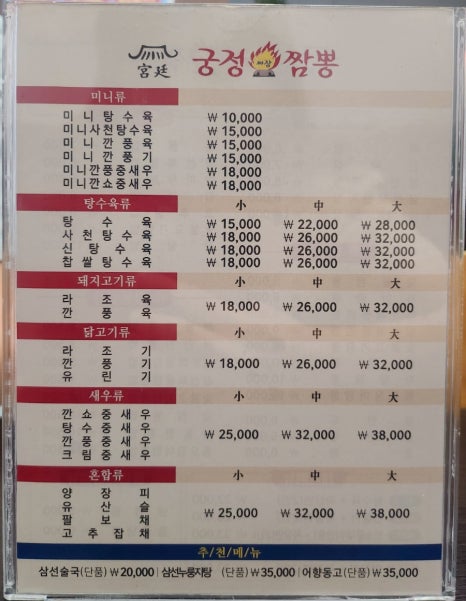 宮廷 궁정 짬뽕
미니류
미니탕수육 ₩10,000
미니사천탕수육 ₩15,000
미니깐풍육 ₩15,000
미니깐풍기 ₩15,000
미니깐풍중새우 ₩18,000
미니깐쇼중새우 ₩18,000
탕수육류 小 中 大
탕수육 ₩15,000 ₩22,000 ₩28,000
사천탕수육 ₩18,000 ₩26,000 ₩32,000
신탕수육 ₩18,000 ₩26,000 ₩32,000
찹쌀탕수육 ₩18,000 ₩26,000 ₩32,000
돼지고기류 小 中 大
라조육
깐풍육
₩18,000 ₩26,000 ₩32,000
닭고기류 小 中 大
라조기
깐풍기 ₩18,000 ₩26,000 ₩32,000
유린기
새우류 小 中 大
깐쇼중새우
탕수중새우
깐풍중새우
크림중새우
₩25,000 ₩32,000 ₩38,000
혼합류 小 中 大
양장피
유산슬
팔보채
고추잡채
₩25,000 ₩32,000 ₩38,000
추/천/메/뉴
삼선술국(단품) ₩20,000 | 삼선누룽지탕 (단품) ₩35,000 | 어향동고(단품) ₩35,000